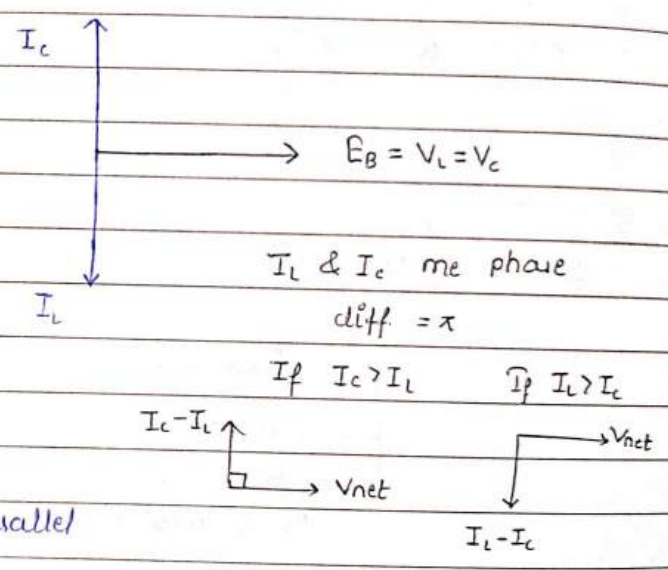 I_c
E_B = V_L = V_c
I_L & I_c me phase
I_L
diff. = π
If I_c > I_L
If I_L > I_c
I_c - I_L
V_net
V_net
I_L - I_c